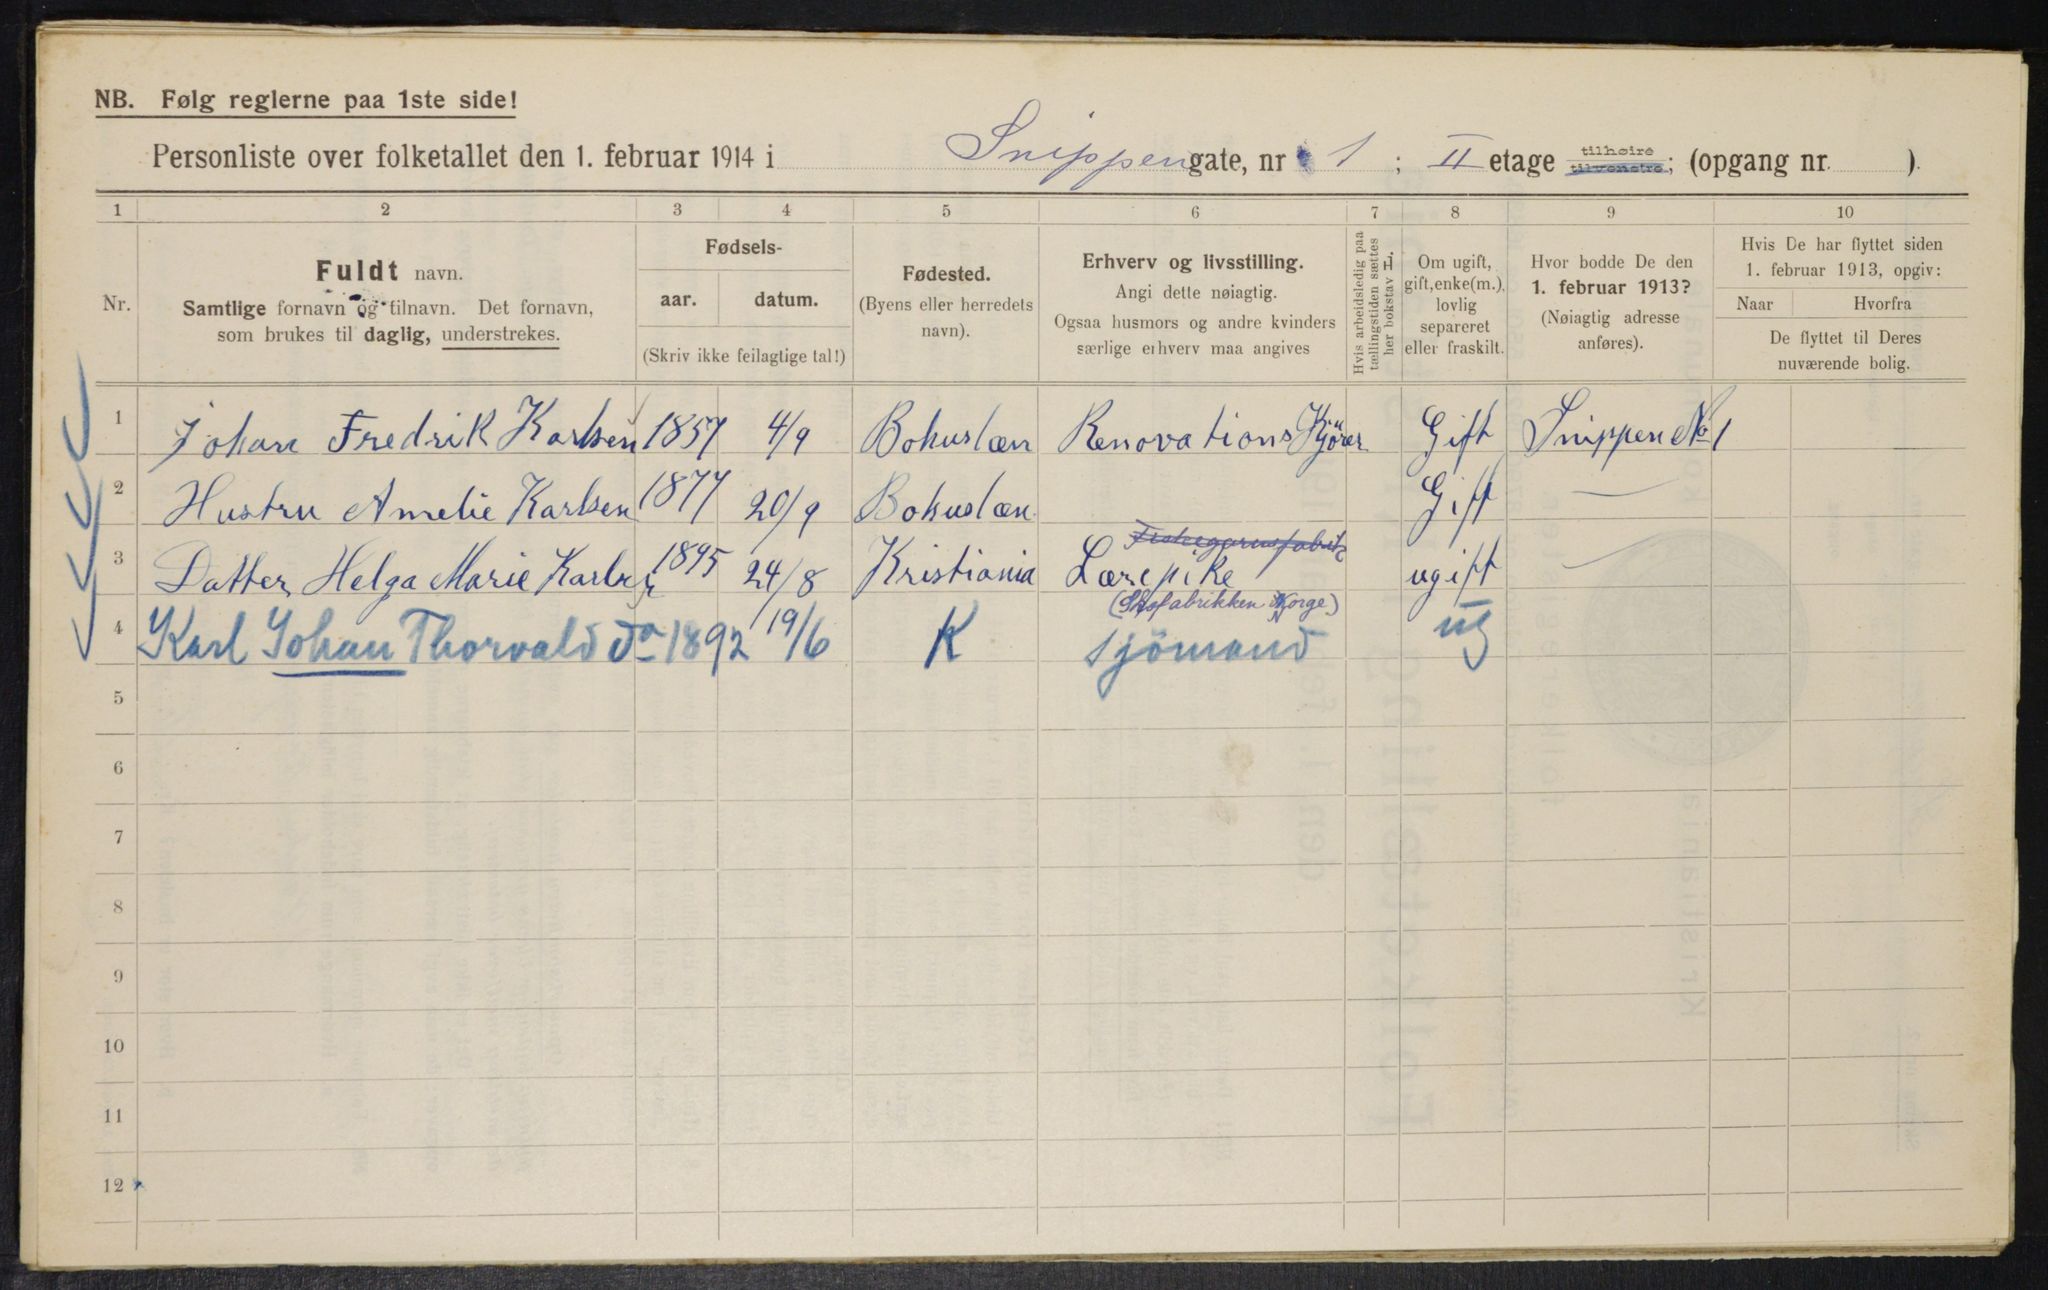 NB. Følg reglerne paa 1ste side!
Personliste over folketallet den 1. februar 1914 i Snippen gate, nr 1 ; II etage tilhøire tilvenstre; (opgang nr. ).
1 2 3 4 5 6 7 8 9 10
Nr.
Fuldt navn.
Samtlige fornavn og tilnavn. Det fornavn,
som brukes til daglig, understrekes.
Fødsels-
aar. datum.
(Skriv ikke feilagtige tal!)
Fødested.
(Byens eller herredets
navn).
Erhverv og livsstilling.
Angi dette nøiagtig.
Ogsaa husmors og andre kvinders
særlige erhverv maa angives
Hvis arbeidsledig paa
tællingstiden sættes
her bokstav L.
Om ugift,
gift, enke(m.),
lovlig
separeret
eller fraskilt.
Hvor bodde De den
1. februar 1913?
(Nøiagtig adresse
anføres).
Hvis De har flyttet siden
1. februar 1913, opgiv:
Naar Hvorfra
De flyttet til Deres
nuværende bolig.
1 Johan Fredrik Karlsen 1857 4/9 Bohuslæn Renovations Kjörer Gift Snippen No 1
2 Hustru Amelie Karlsen 1877 20/9 Bohuslæn Gift —
3 Datter Helga Marie Karlsen 1895 24/8 Kristiania Lærepike ugift —
(Skofabrikken Norge)
4 Karl Johan Thorvald do 1892 19/6 K sjömand ug
5
6
7
8
9
10
11
12